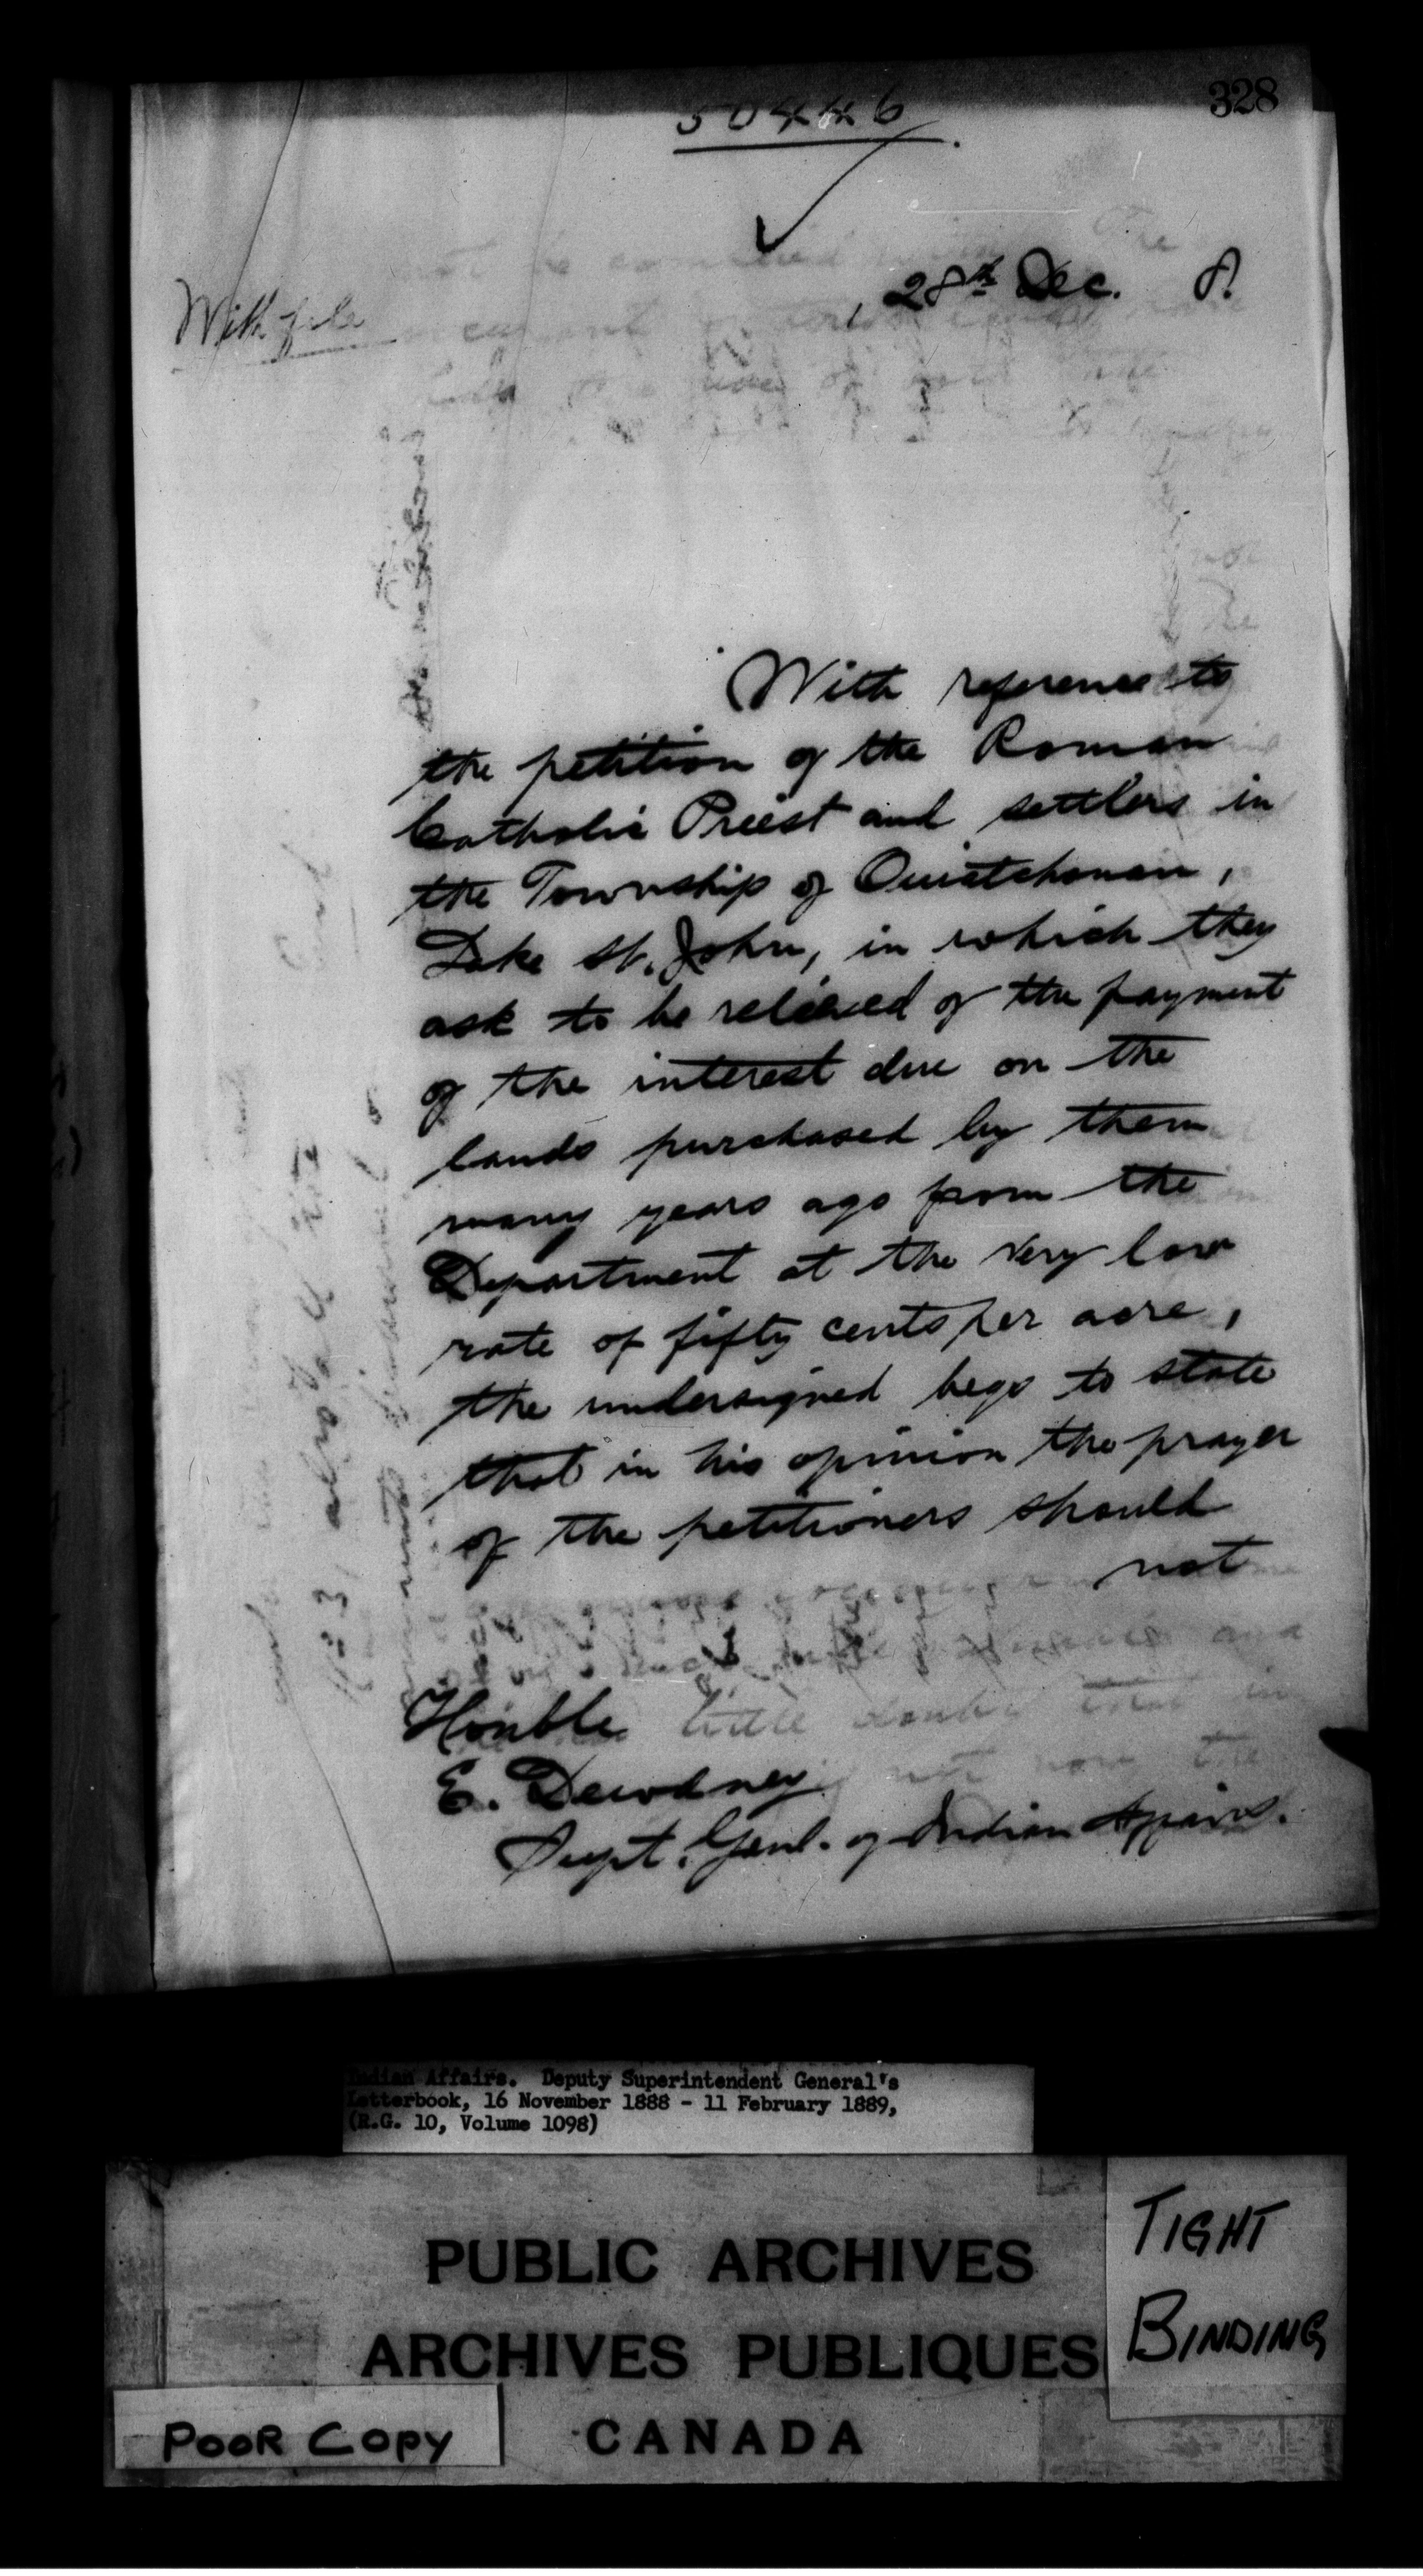 328
50446
28th Dec. 8
With file
With reference to
the petition of the Roman
Catholic Priest and settlers in
the Township of Ouiatchouan,
Lake St. John, in which they
ask to be relieved of the payment
of the interest due on the
lands purchased by them
many years ago from the
Department at the very low
rate of fifty cents per acre,
the undersigned begs to state
that in his opinion the prayer
of the petitioners should
not
Honble
E. Dewdney
Supt. Genl. of Indian Affairs.
Indian Affairs. Deputy Superintendent General's
Letterbook, 16 November 1888 - 11 February 1889,
(R.G. 10, Volume 1098)
PUBLIC ARCHIVES
ARCHIVES PUBLIQUES
CANADA
TIGHT
BINDING
POOR COPY